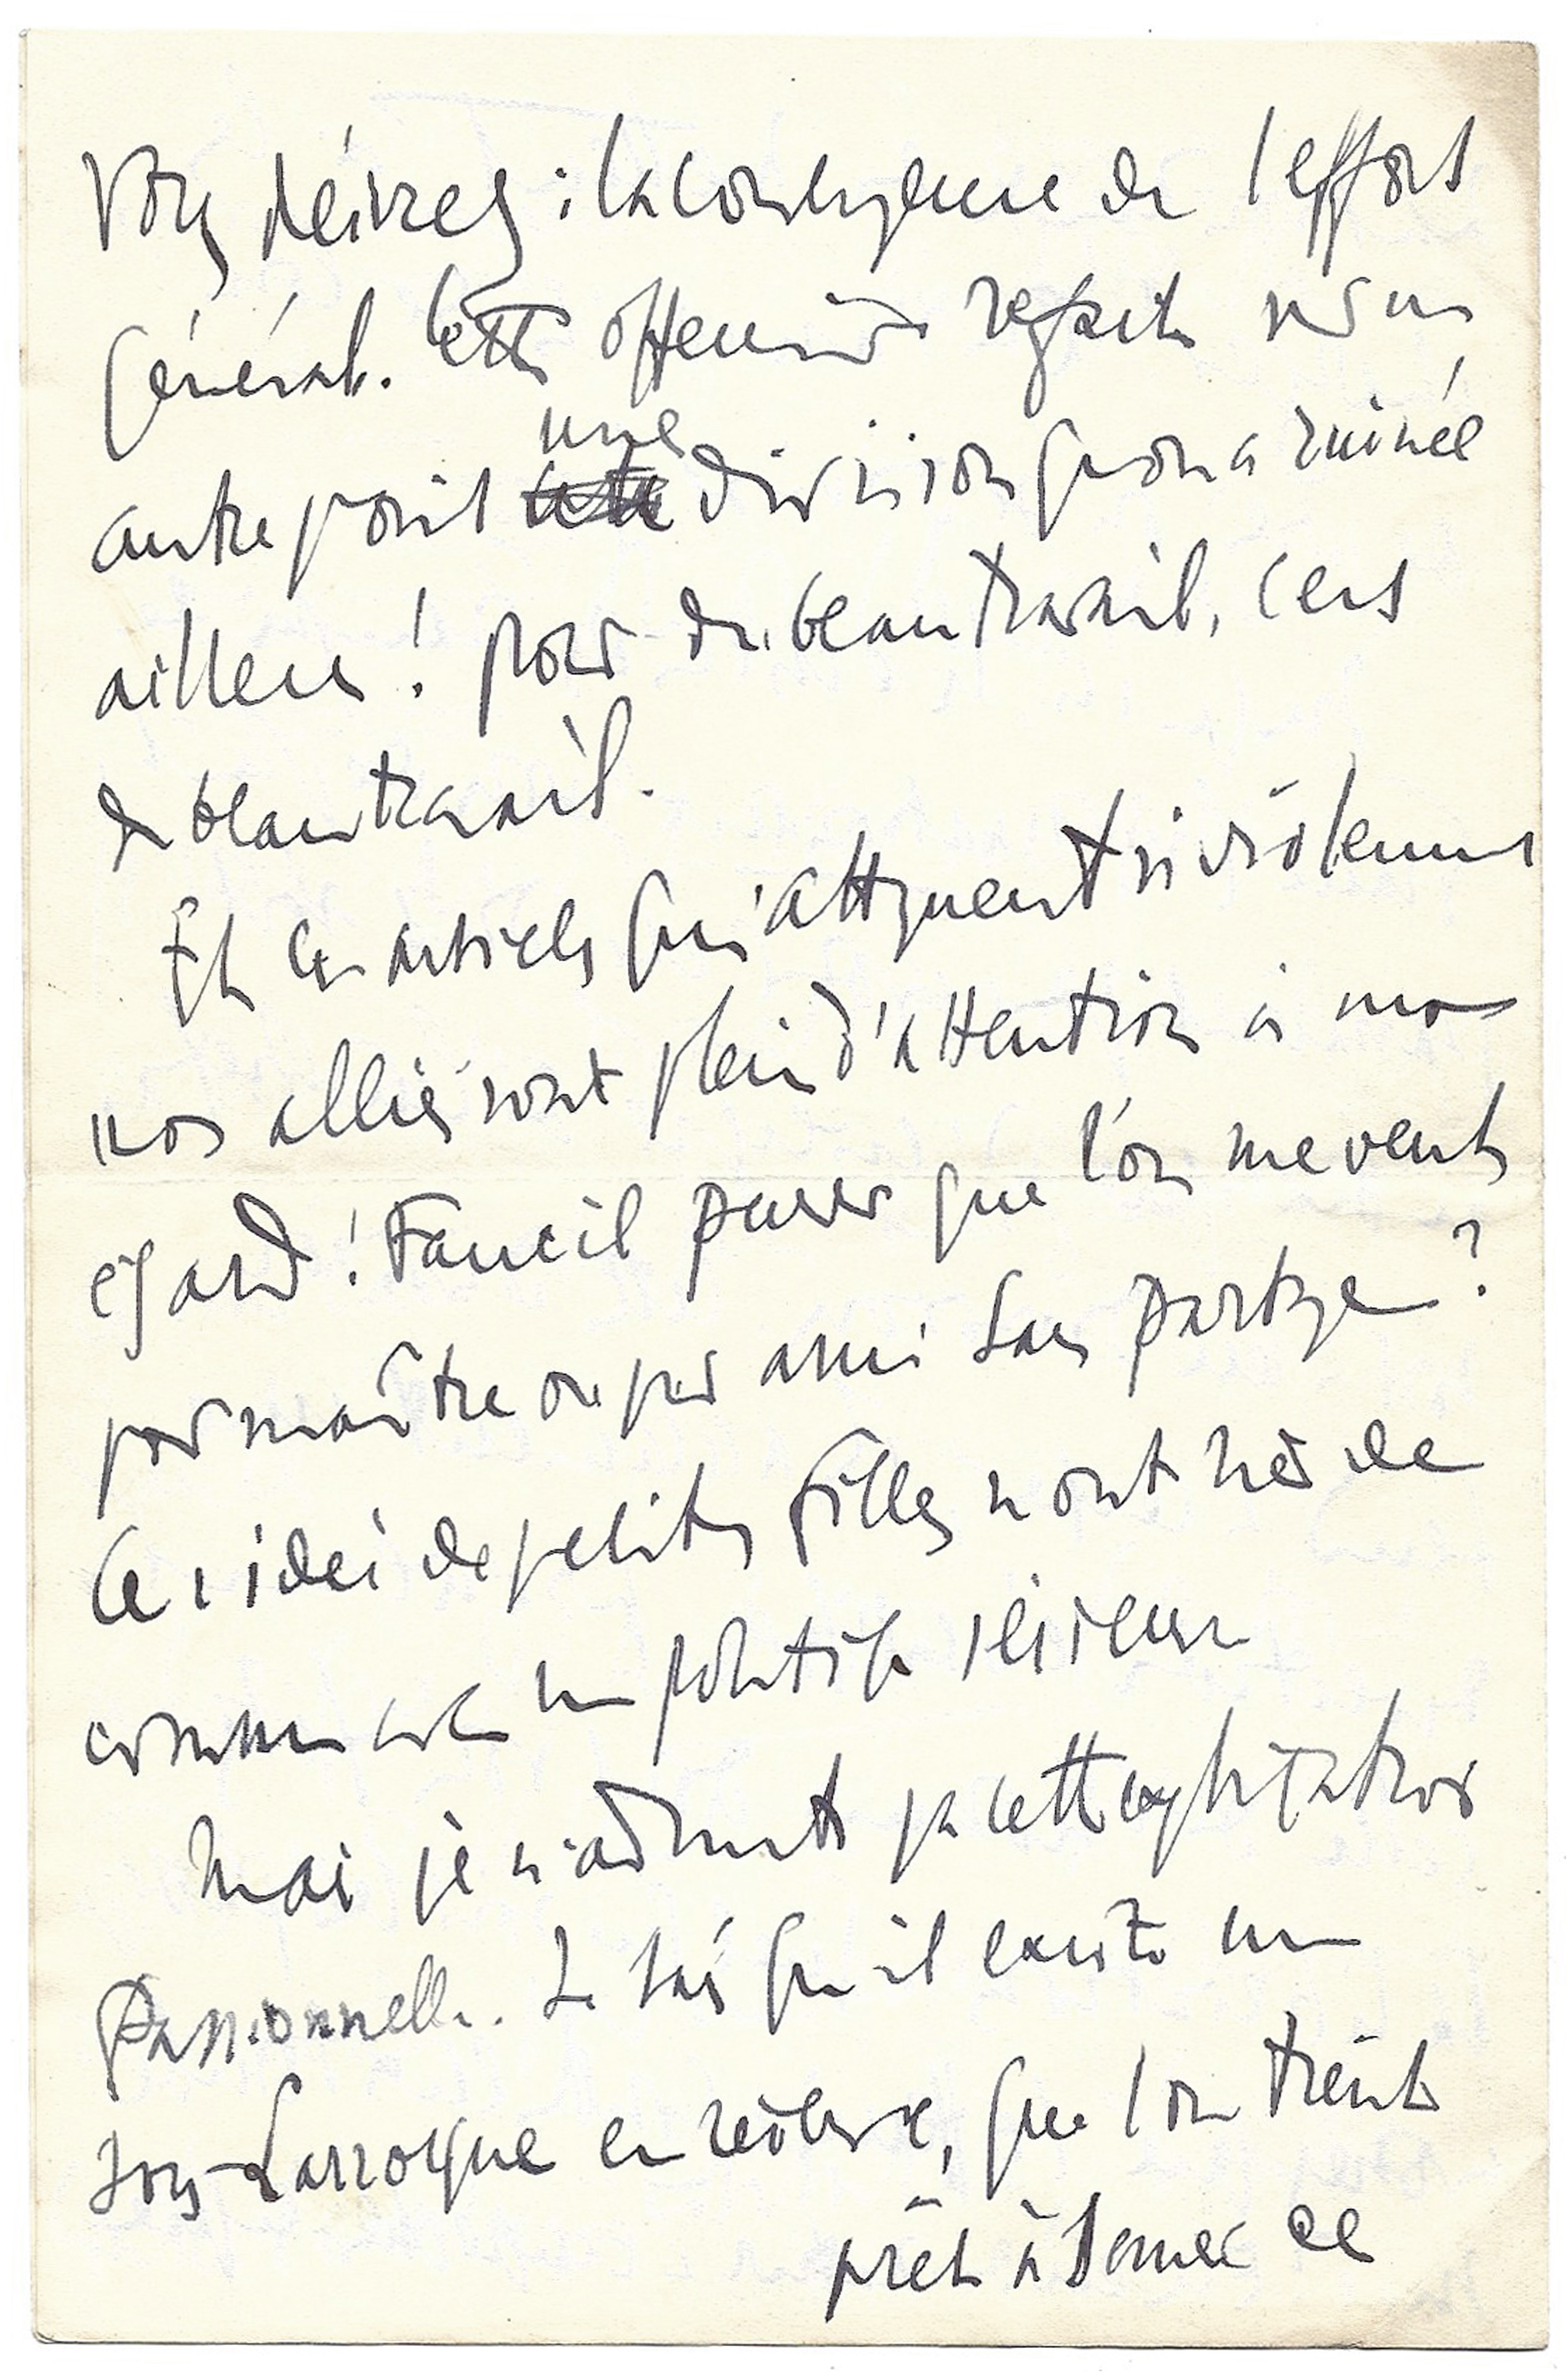 Vous désirez : la convergence de l'effort
général. Cette offensive refait sur un
autre point une division qu'on a ruinée
ailleurs ! pour du beau travail, c'est
du beau travail.
Et ces articles qui attaquent si violemment
nos alliés sont plein d'attention à mon
égard ! Faut-il penser que l'on me veut
pour maître ou pour ami sans partage ?
Ces idées de petites filles n'ont rien de
commun avec une politique sérieuse
Mais je n'admets pas cette explication
passionnelle. Je sais qu'il existe un
sous-Larroque en réserve, que l'on tient
prêt à donner